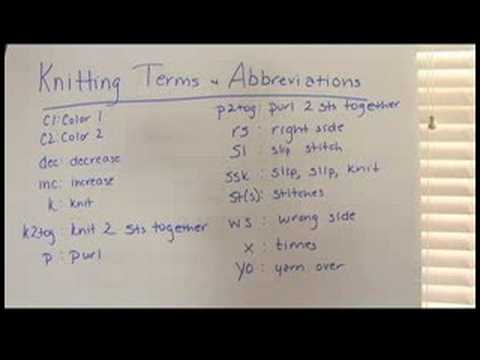 Knitting Terms & Abbreviations
C1: Color 1
C2: Color 2
dec: decrease
inc: increase
k: knit
k2tog: knit 2 sts together
p: purl
p2tog: purl 2 sts together
rs: right side
Sl: slip stitch
ssk: slip, slip, knit
st(s): stitches
ws: wrong side
x: times
yo: yarn over